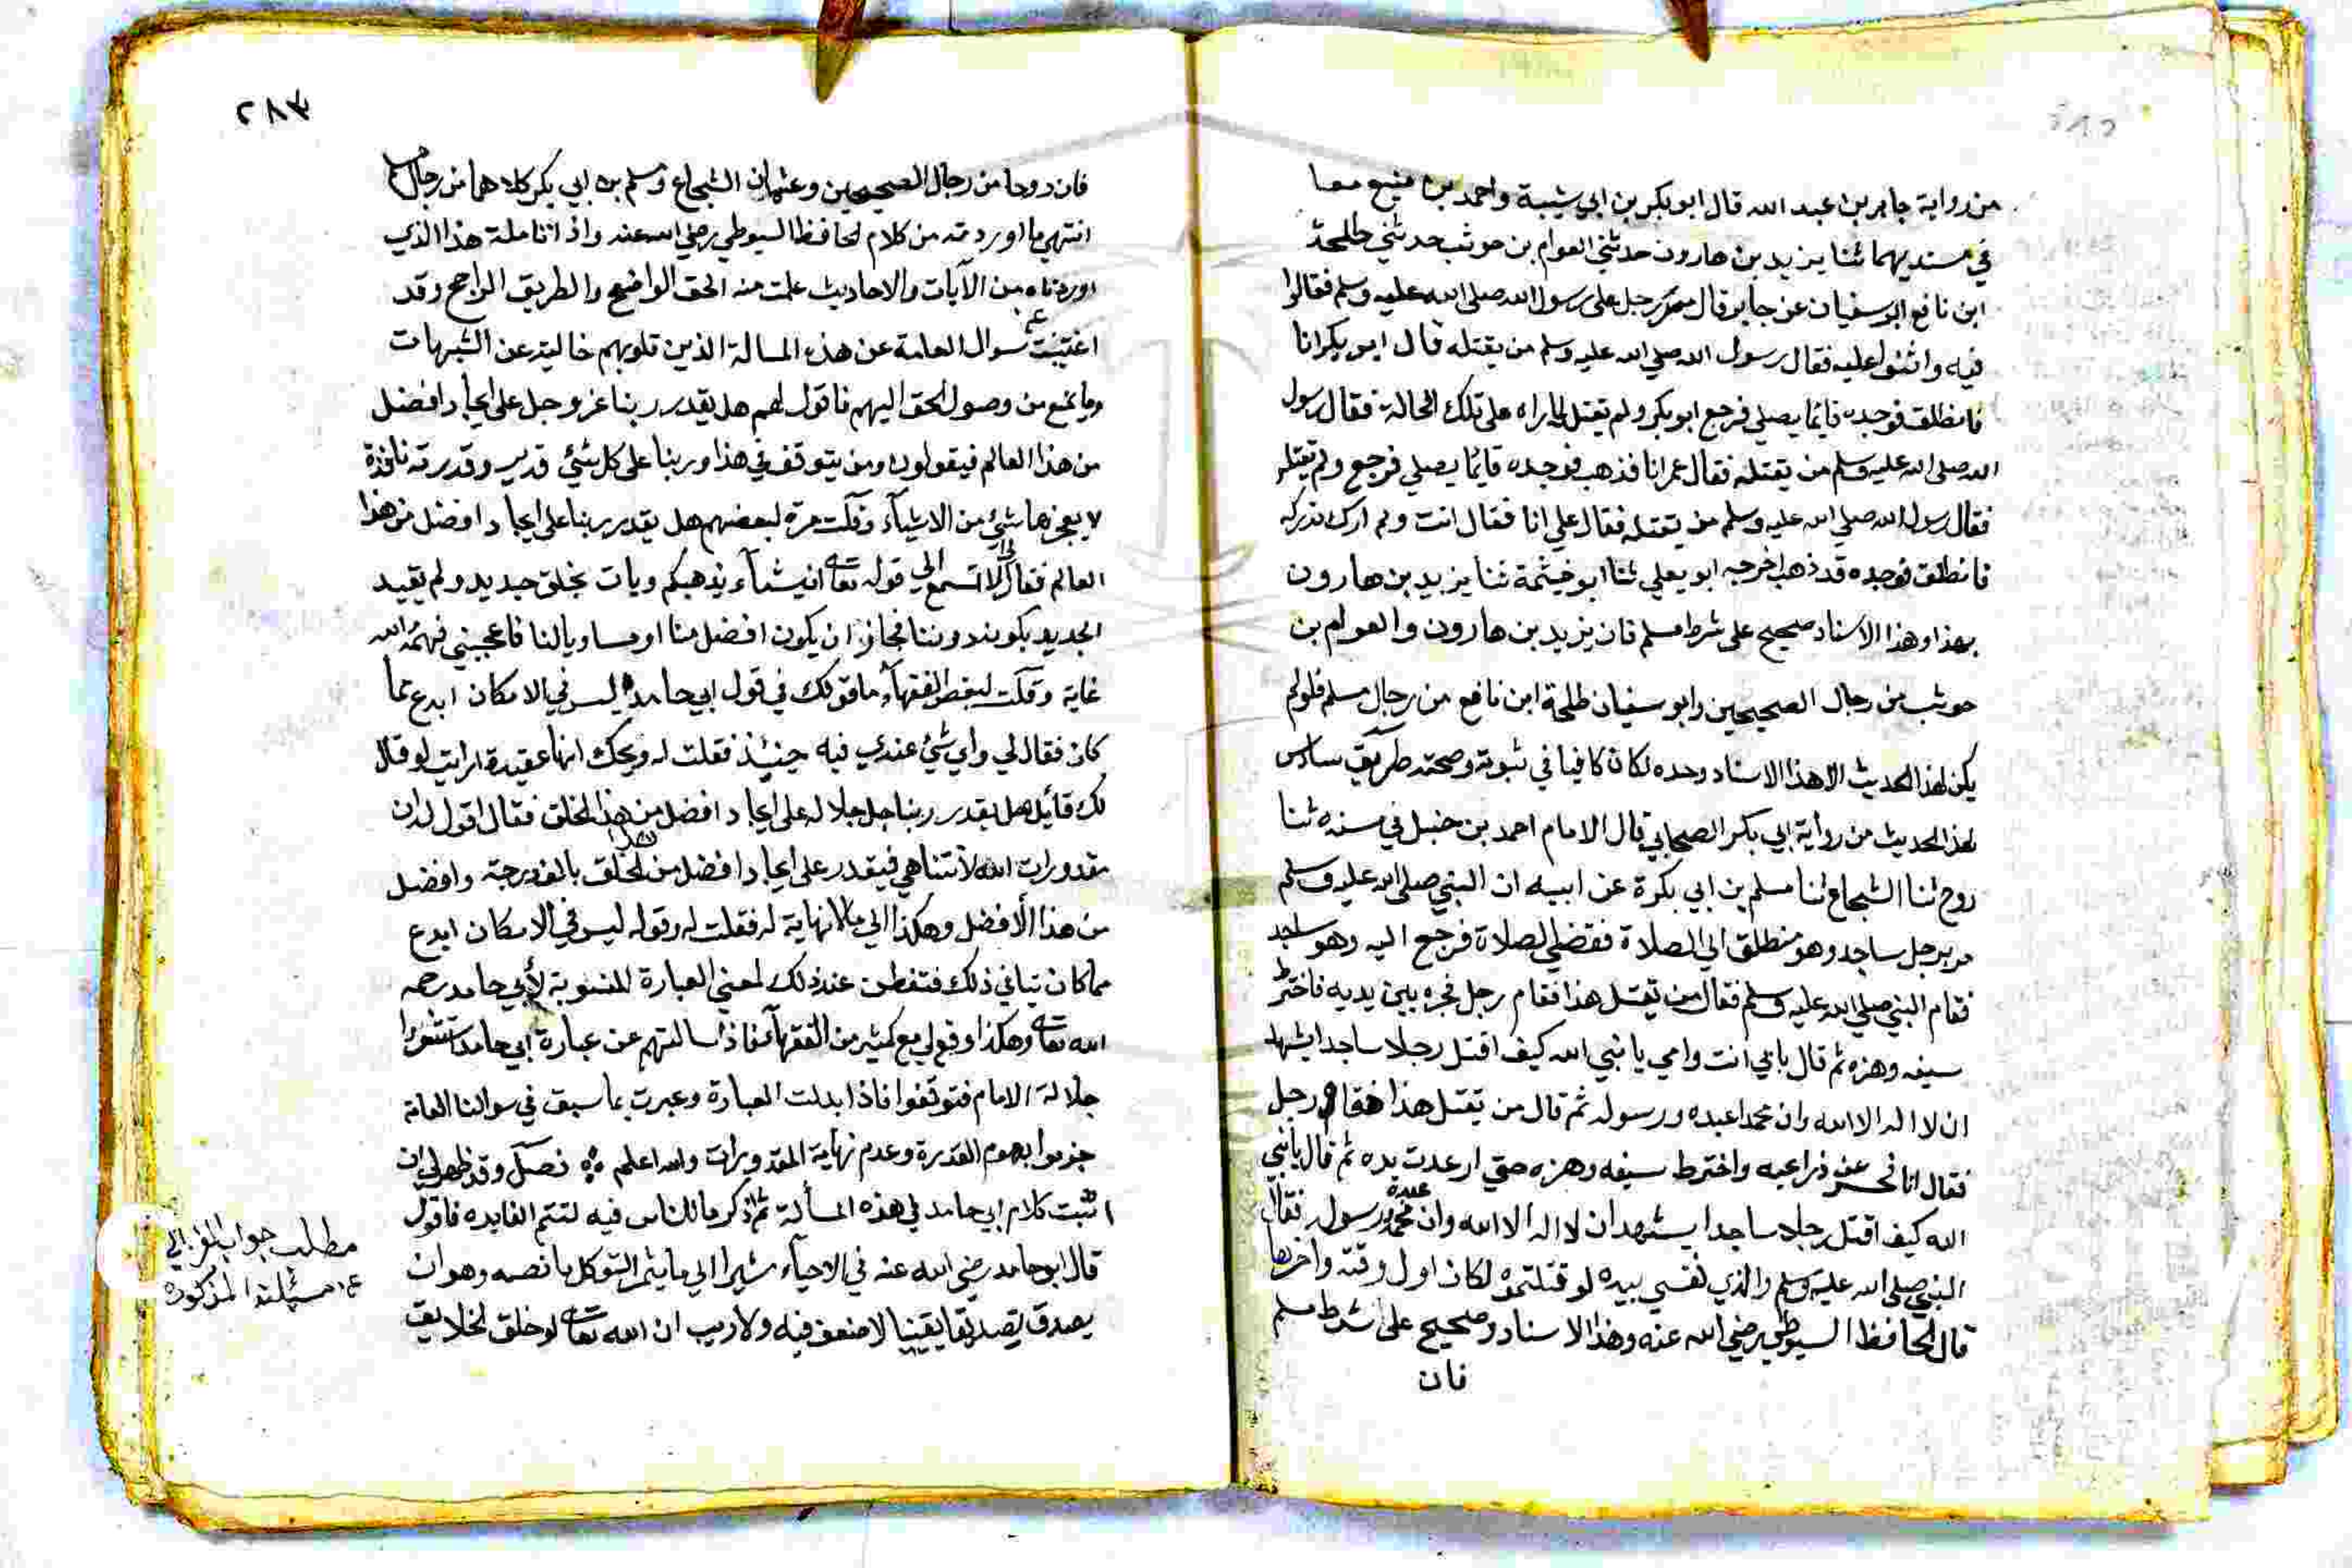 من رواية جابر بن عبد الله قال ابو بكر بن ابي شيبة واحمد بن منيع معا
في مسنديهما ثنا يزيد بن هارون حدثني العوام بن حوشب حدثني طلحة
ابن نافع ابو سفيان عن جابر قال مر رجل على رسول الله صلى الله عليه وسلم فقالوا
فيه واثنوا عليه فقال رسول الله صلي الله عليه وسلم من يقتله قال ابو بكر انا
فانطلق فوجده قايما يصلي فرجع ابو بكر ولم يقتله لما راه على تلك الحالة فقال رسول
الله صلى الله عليه وسلم من يقتله فقال عمر انا فذهب فوجده قائما يصلي فرجع ولم يقتله
فقال رسول الله صلي الله عليه وسلم من يقتله فقال علي انا فقال انت ولا اراك تدركه
فانطلق فوجده قد ذهب اخرجه ابو يعلي ثنا ابو خيثمة ثنا يزيد بن هارون
بهذا وهذا الاسناد صحيح على شرط مسلم فان يزيد بن هارون والعوام بن
حوشب من رجال الصحيحين وابو سفيان طلحة ابن نافع من رجال مسلم فلو لم
يكن لهذا الحديث الا هذا الاسناد وحده لكان كافيا في ثبوته وصحته طريق سادس
لهذا الحديث من رواية ابي بكر الصحابي قال الامام احمد بن حنبل في مسنده ثنا
روح ثنا الشجاع ثنا مسلم بن ابي بكرة عن ابيه ان النبي صلى الله عليه وسلم
مر برجل ساجد وهو منطلق الي الصلاة فقضي الصلاة فرجع اليه وهو ساجد
فقام النبي صلي الله عليه وسلم فقال من يقتل هذا فقام رجل فجره بين يديه فاخترط
سيفه وهزه ثم قال بابي انت وامي يا نبي الله كيف اقتل رجلا ساجدا يشهد
ان لا اله الا الله وان محمدا عبده ورسوله ثم قال من يقتل هذا فقام رجل
فقال انا فحسر عن ذراعيه واخترط سيفه وهزه حتي ارعدت يده ثم قال يا نبي
الله كيف اقتل رجلا ساجدا يشهد ان لا اله الا الله وان محمدا عبده ورسوله فقال
النبي صلى الله عليه وسلم والذي نفسي بيده لو قتلتموه لكان اول وقتة واخرها
قال الحافظ السيوطي رضي الله عنه وهذا الاسناد صحيح على شرط مسلم
فان
٢٨٣
فان روحا من رجال الصحيحين وعثمان الشجاع ومسلم بن ابي بكر كلاهما من رجال مسلم
انتهي ما اوردته من كلام الحافظ السيوطي رضي الله عنه واذا تاملت هذا الذي
اوردناه من الآيات والاحاديث علمت منه الحق الواضح والطريق الراجح وقد
سوال العامة عن هذه المسالة الذين قلوبهم خالية عن الشبهات
وما يمنع من وصول الحق اليهم فاقول لهم هل يقدر ربنا عز وجل على ايجاد افضل
من هذا العالم فيقولون ومن يتوقف في هذا وربنا على كل شئ قدير وقدرته نافذة
لا يعجزها شئ من الاشياء وقلت مرة لبعضهم هل يقدر ربنا على ايجاد افضل من هذا
العالم فقال لي الا تسمع الي قوله تعالى ان يشأ يذهبكم ويات بخلق جديد ولم يقيد
الجديد بكونه دوننا فجاز ان يكون افضل منا او مساويا لنا فاعجبني فهمه الله
غاية وقلت لبعض الفقهاء ما قولك في قول ابي حامد ليس في الامكان ابدع مما
كان فقال لي واي شئ عندي فيه حينئذ فقلت له ويحك انها عقيدة ارايت لو قال
لك قائل هل يقدر ربنا جل جلاله على ايجاد افضل من هذا الخلق فقال اقول له ان
مقدورات الله لا تتناهي فيقدر على ايجاد افضل من هذا الخلق بالف درجة وافضل
من هذا الأفضل وهكذا الي ما لا نهاية له فقلت له وقوله ليس في الامكان ابدع
مما كان ينافي ذلك فتفطن عند ذلك لمعني العبارة المنسوبة لأبي حامد رحمه
الله تعالى وهكذا وقع لي مع كثير من الفقهاء فاذا سالتهم عن عبارة ابي حامد استشعروا
جلالة الامام فتوقفوا فاذا ابدلت العبارة وعبرت بما سبق في سوالنا العامة
جزموا بعموم القدرة وعدم نهاية المقدورات والله اعلم فصل وقد ظهر لي ان
اثبت كلام ابي حامد في هذه المسألة ثم اذكر ما للناس فيه لتتم الفايده فاقول
قال ابو حامد رضي الله عنه في الاحياء مشيرا الي ما يثمر التوكل ما نصه وهو ان
يصدق تصديقا يقينيا لا ضعف فيه ولا ريب ان الله تعالى لو خلق الخلايق
مطلب جواب الغزالي
عن مسئلته المذكورة